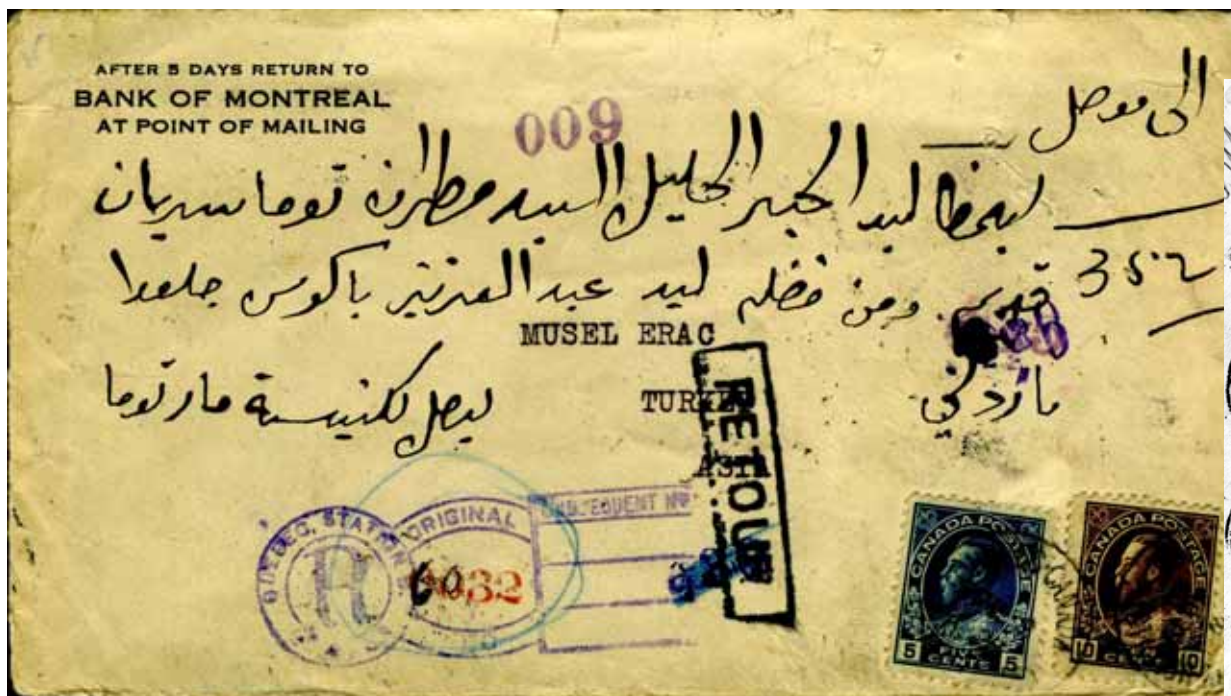 AFTER 5 DAYS RETURN TO
BANK OF MONTREAL
AT POINT OF MAILING
009
الى موصل
الحبر الجليل السيد مطران توما سريان
352
قديم ومن فضله ليد عبد العزيز باكوس
MUSEL ERAC
ماردني
TURKEY
ليصل لكنيسة مار توما
ASIA
RETOUR
QUEBEC, STATION B
R
ORIGINAL
6032
SUBSEQUENT NOS
CANADA POSTAGE
5 FIVE CENTS 5
CANADA POSTAGE
10 TEN CENTS 10